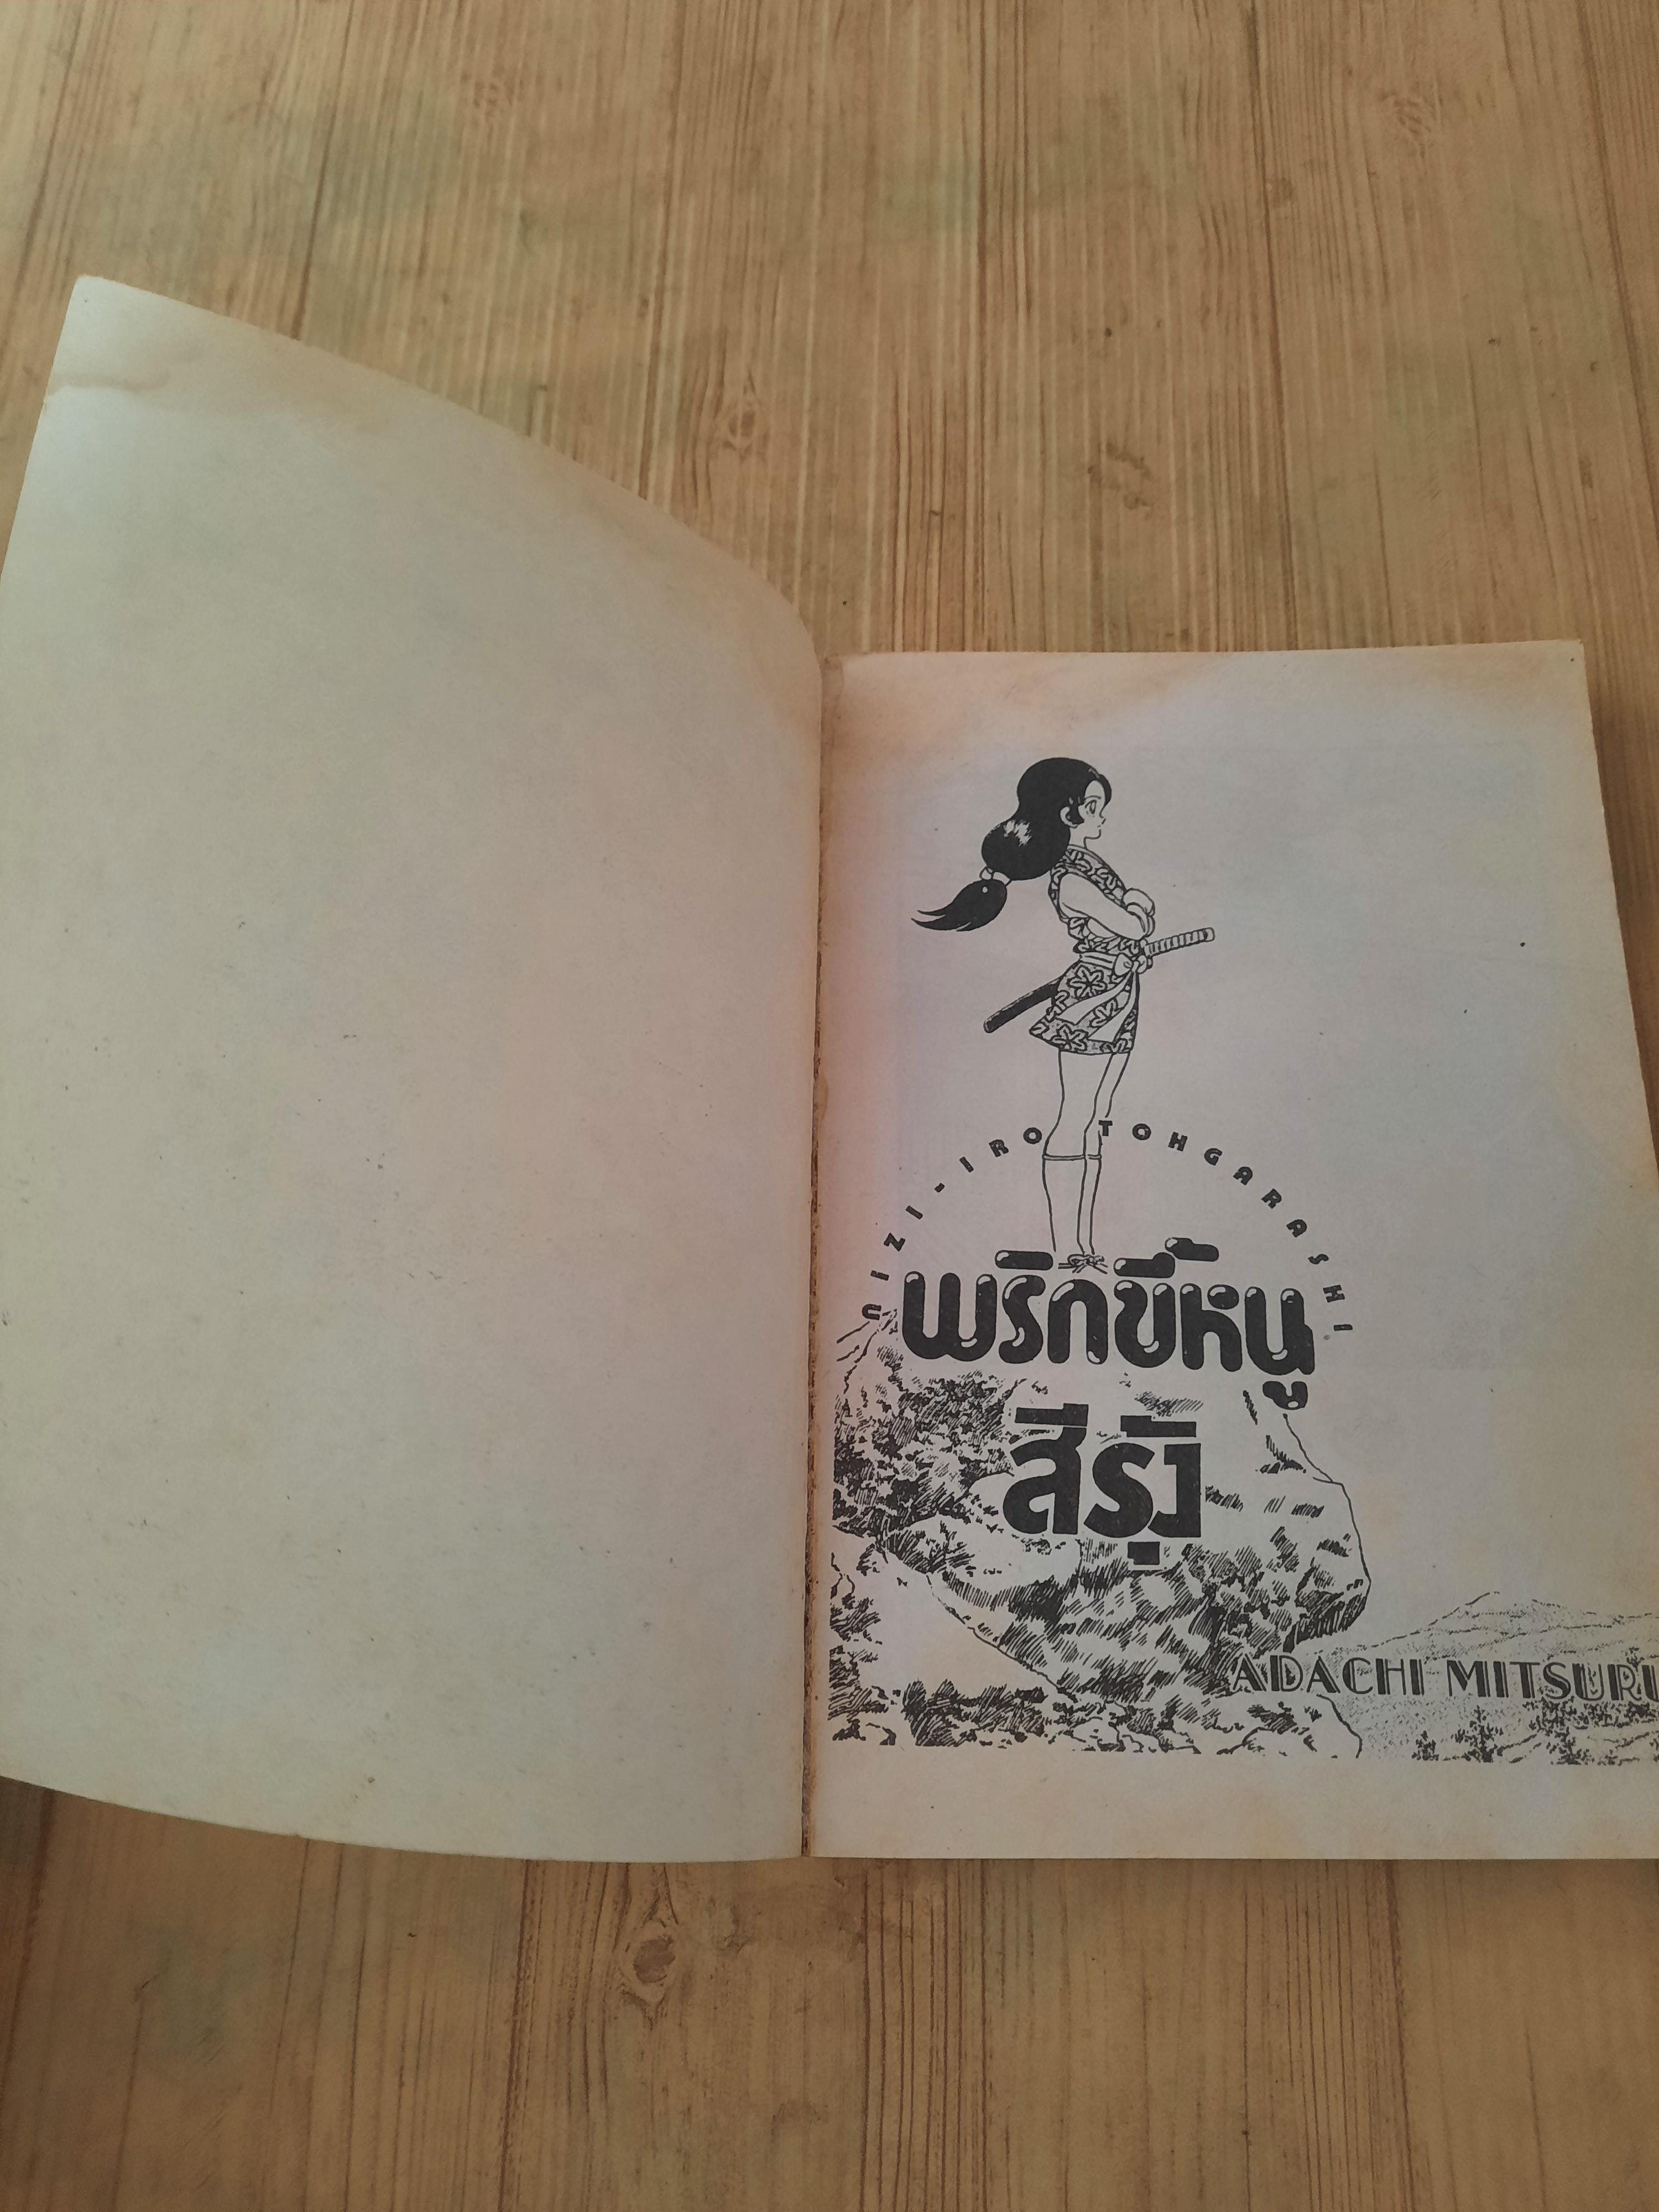 NIZI-IRO TOHGARASHI
พริกขี้หนู
สีรุ้ง
ADACHI MITSURU